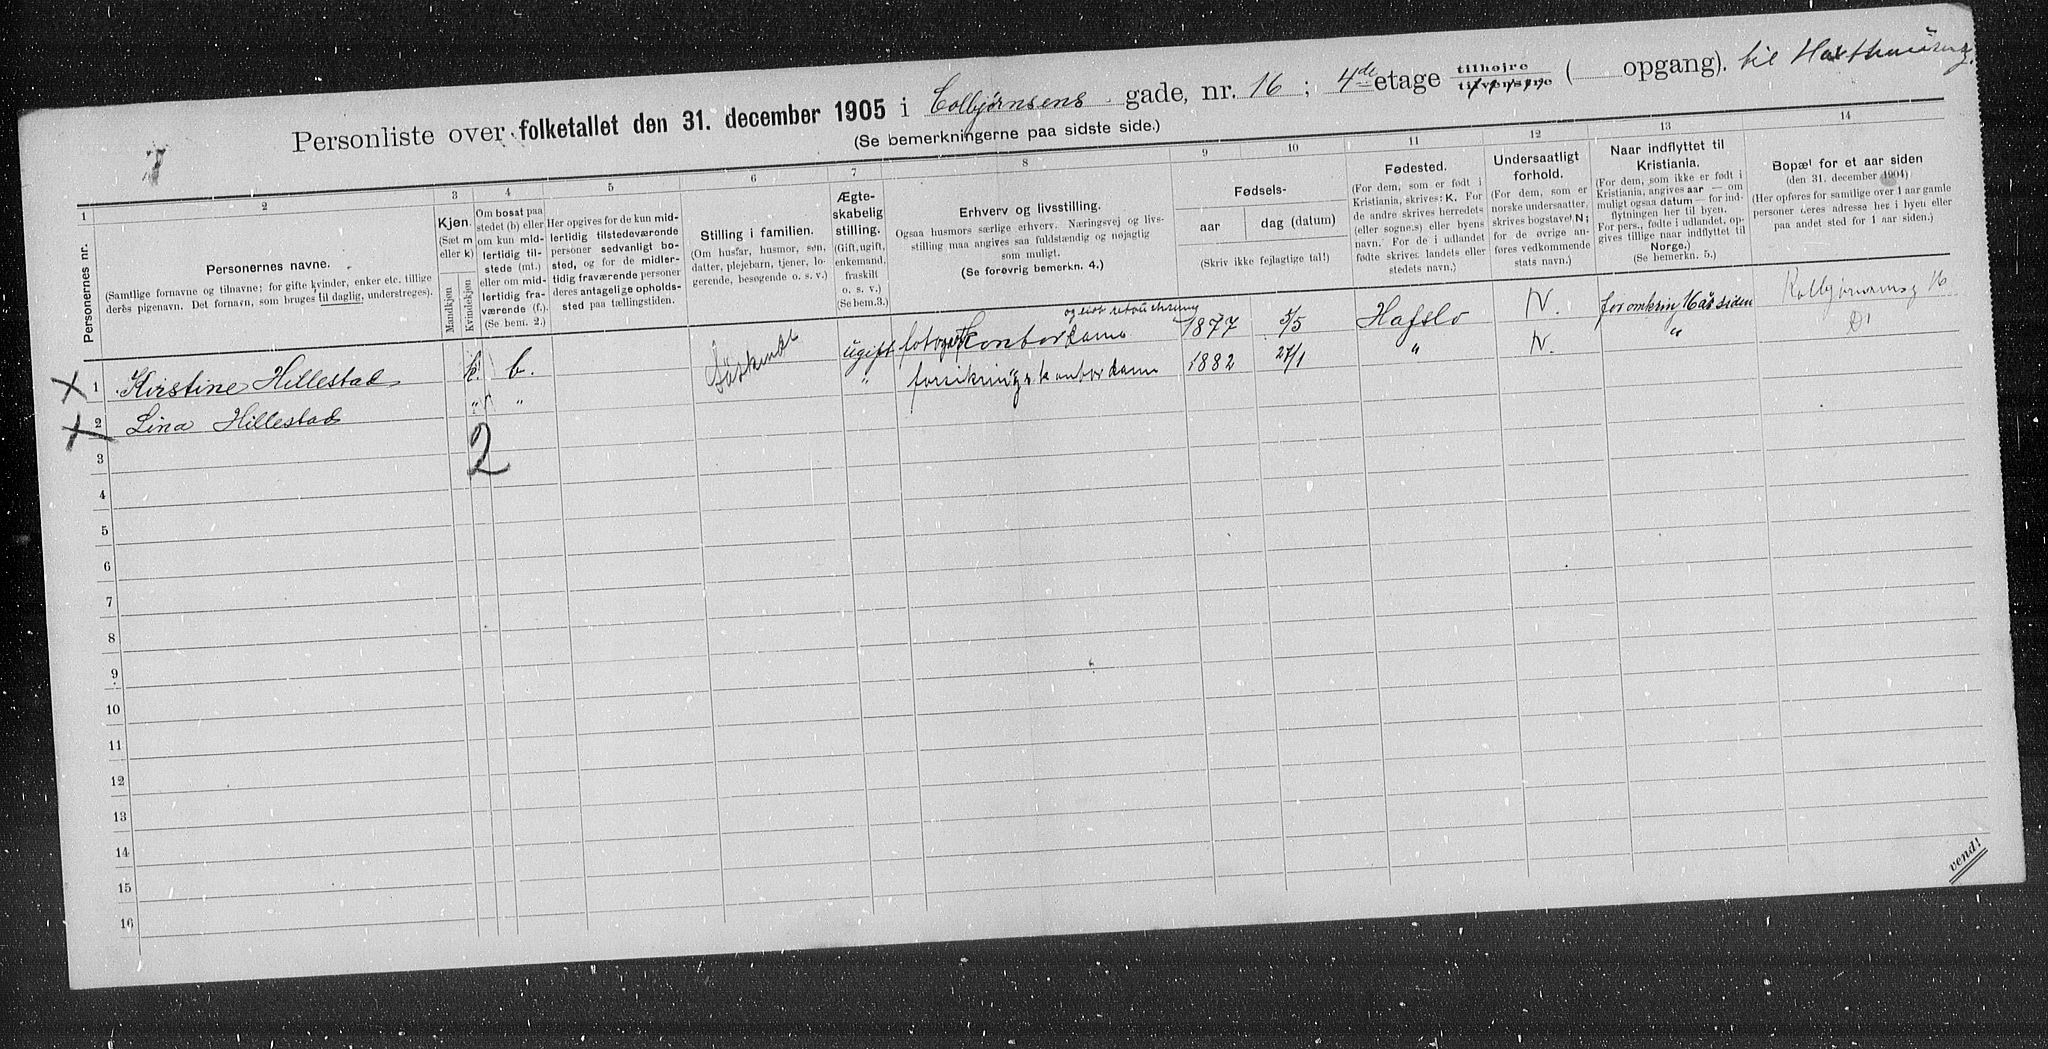 7
Personliste over folketallet den 31. december 1905 i Colbjørnsens gade, nr. 16 ; 4de etage tilhøjre tilvenstre ( opgang). til Haxthausensg.
(Se bemerkningerne paa sidste side.)
1 2 3 4 5 6 7 8 9 10 11 12 13 14
Personernes nr.
Personernes navne.
(Samtlige fornavne og tilnavne; for gifte kvinder, enker etc. tillige
deres pigenavn. Det fornavn, som bruges til daglig, understreges).
Kjøn.
(Sæt m
eller k)
Mandkjøn
Kvindekjøn
Om bosat paa
stedet (b) eller
om kun mid-
lertidig til-
stede (mt.)
eller om mid-
lertidig fra-
værende (f.).
(Se bem. 2.)
Her opgives for de kun mid-
lertidig tilstedeværende
personer sedvanligt bo-
sted, og for de midler-
tidig fraværende personer
deres antagelige opholds-
sted paa tællingstiden.
Stilling i familien.
(Om husfar, husmor, søn,
datter, plejebarn, tjener, lo-
gerende, besøgende o. s. v.)
Ægte-
skabelig
stilling.
(Gift, ugift,
enkemand,
fraskilt
o. s. v.)
(Se bem.3.)
Erhverv og livsstilling.
Ogsaa husmors særlige erhverv. Næringsvej og livs-
stilling maa angives saa fuldstændig og nøjagtig
som muligt.
(Se forøvrig bemerkn. 4.)
Fødsels-
aar
dag (datum)
(Skriv ikke fejlagtige tal!)
Fødested.
(For dem, som er født i
Kristiania, skrives: K. For
de andre skrives herredets
(eller sognets) eller byens
navn. For de i udlandet
fødte skrives landets eller
stedets navn.)
Undersaatligt
forhold.
(For dem, som er
norske undersaatter,
skrives bogstavet N;
for de øvrige an-
føres vedkommende
stats navn.)
Naar indflyttet til
Kristiania.
(For dem, som ikke er født i
Kristiania, angives aar — om
muligt ogsaa datum — for ind-
flytningen her til byen.
For pers., født i udlandet, op-
gives tillige naar indflyttet til
Norge.)
(Se bemerkn. 5.)
Bopæl for et aar siden
(den 31. december 1904)
(Her opføres for samtlige over 1 aar gamle
personer deres adresse her i byen eller
paa andet sted for 1 aar siden.)
1 Kirstine Hillestad k. b. Søskende ugift fotograf kontordame og 1877 5/5 Hafslo N. for omkring siden Kolbjørnsensg 16
2 Lina Hillestad " " " forsikringskontordame 1882 27/1 " N. " D°
2
3
4
5
6
7
8
9
10
11
12
13
14
15
16
vend!